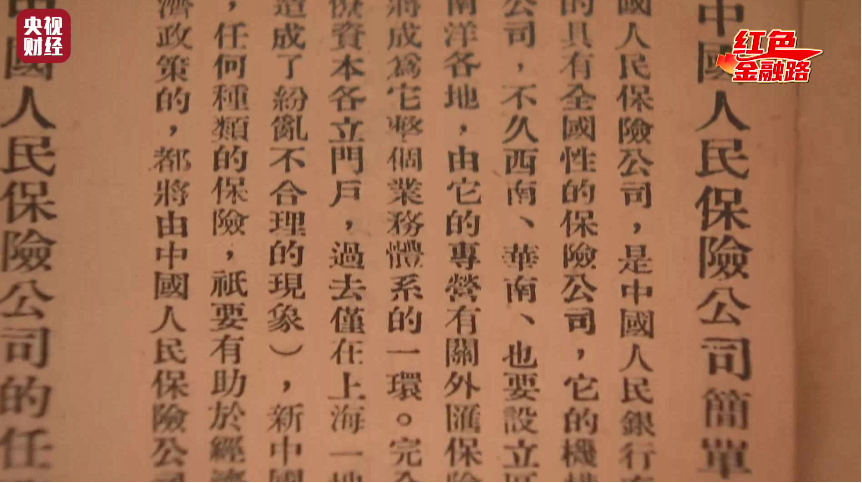 央视
财经
红色
金融路
中國人民保險公司簡單
國人民保險公司，是中國人民銀行
的具有全國性的保險公司，它的機
公司，不久西南、華南、也要設立
南洋各地，由它的專營有關外匯保險
將成爲它整個業務體系的一環。完
資本各立門戶，過去僅在上海一地
造成了紛亂不合理的現象），新中國
，任何種類的保險，祇要有助於經濟
濟政策的，都將由中國人民保險公司
中國人民保險公司的任